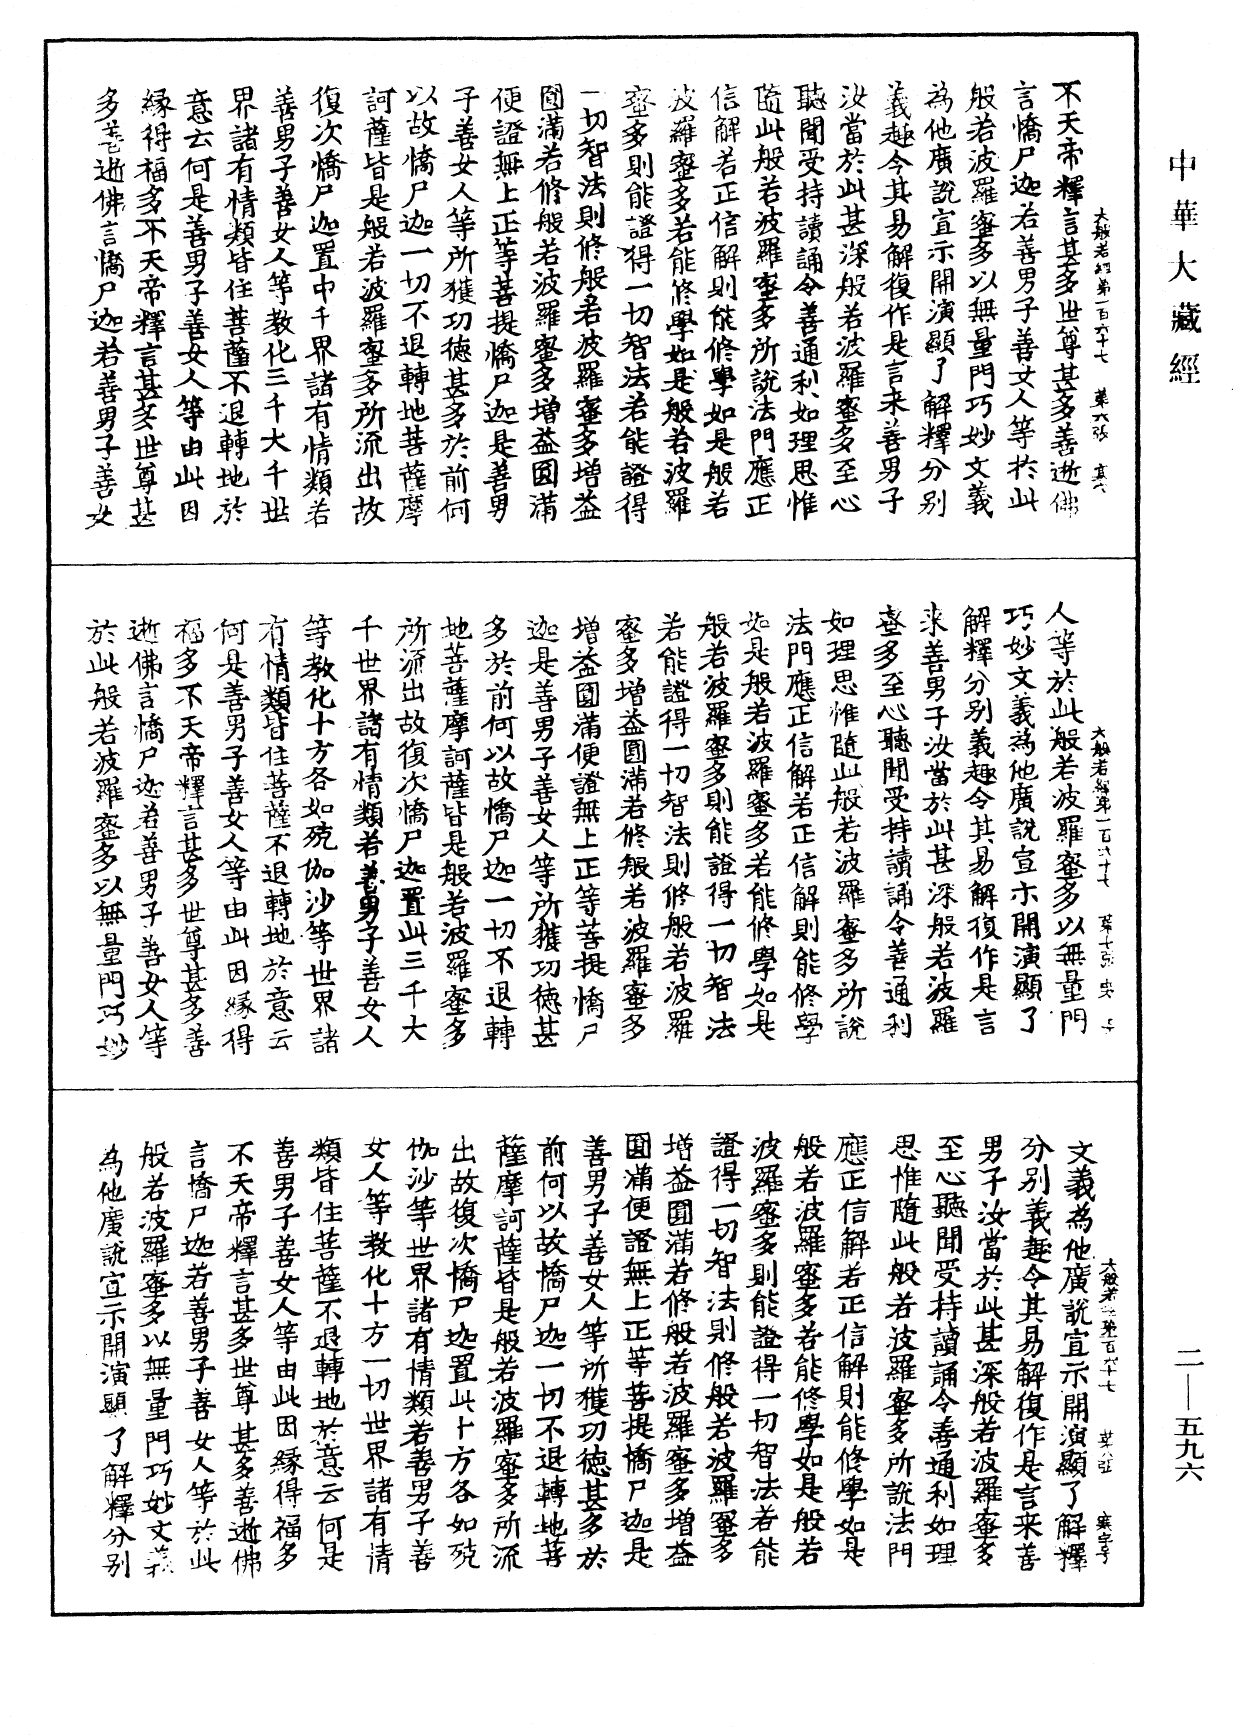 中華大藏經
大般若經第一百六十七 第六張
不天帝釋言甚多世尊甚多善逝佛
言憍尸迦若善男子善女人等於此
般若波羅蜜多以無量門巧妙文義
為他廣說宣示開演顯了解釋分別
義趣令其易解復作是言来善男子
汝當於此甚深般若波羅蜜多至心
聽聞受持讀誦令善通利如理思惟
隨此般若波羅蜜多所說法門應正
信解若正信解則能修學如是般若
波羅蜜多若能修學如是般若波羅
蜜多則能證得一切智法若能證得
一切智法則修般若波羅蜜多增益
圓滿若修般若波羅蜜多增益圓滿
便證無上正等菩提憍尸迦是善男
子善女人等所獲功德甚多於前何
以故憍尸迦一切不退轉地菩薩摩
訶薩皆是般若波羅蜜多所流出故
復次憍尸迦置中千界諸有情類若
善男子善女人等教化三千大千世
界諸有情類皆住菩薩不退轉地於
意云何是善男子善女人等由此因
緣得福多不天帝釋言甚多世尊甚
多善逝佛言憍尸迦若善男子善女
大般若經第一百六十七 第七張
人等於此般若波羅蜜多以無量門
巧妙文義為他廣說宣示開演顯了
解釋分別義趣令其易解復作是言
来善男子汝當於此甚深般若波羅
蜜多至心聽聞受持讀誦令善通利
如理思惟隨此般若波羅蜜多所說
法門應正信解若正信解則能修學
如是般若波羅蜜多若能修學如是
般若波羅蜜多則能證得一切智法
若能證得一切智法則修般若波羅
蜜多增益圓滿若修般若波羅蜜多
增益圓滿便證無上正等菩提憍尸
迦是善男子善女人等所獲功德甚
多於前何以故憍尸迦一切不退轉
地菩薩摩訶薩皆是般若波羅蜜多
所流出故復次憍尸迦置此三千大
千世界諸有情類若善男子善女人
等教化十方各如殑伽沙等世界諸
有情類皆住菩薩不退轉地於意云
何是善男子善女人等由此因緣得
福多不天帝釋言甚多世尊甚多善
逝佛言憍尸迦若善男子善女人等
於此般若波羅蜜多以無量門巧妙
大般若經第一百六十七 第八張
文義為他廣說宣示開演顯了解釋
分別義趣令其易解復作是言来善
男子汝當於此甚深般若波羅蜜多
至心聽聞受持讀誦令善通利如理
思惟隨此般若波羅蜜多所說法門
應正信解若正信解則能修學如是
般若波羅蜜多若能修學如是般若
波羅蜜多則能證得一切智法若能
證得一切智法則修般若波羅蜜多
增益圓滿若修般若波羅蜜多增益
圓滿便證無上正等菩提憍尸迦是
善男子善女人等所獲功德甚多於
前何以故憍尸迦一切不退轉地菩
薩摩訶薩皆是般若波羅蜜多所流
出故復次憍尸迦置此十方各如殑
伽沙等世界諸有情類若善男子善
女人等教化十方一切世界諸有情
類皆住菩薩不退轉地於意云何是
善男子善女人等由此因緣得福多
不天帝釋言甚多世尊甚多善逝佛
言憍尸迦若善男子善女人等於此
般若波羅蜜多以無量門巧妙文義
為他廣說宣示開演顯了解釋分別
二—五九六